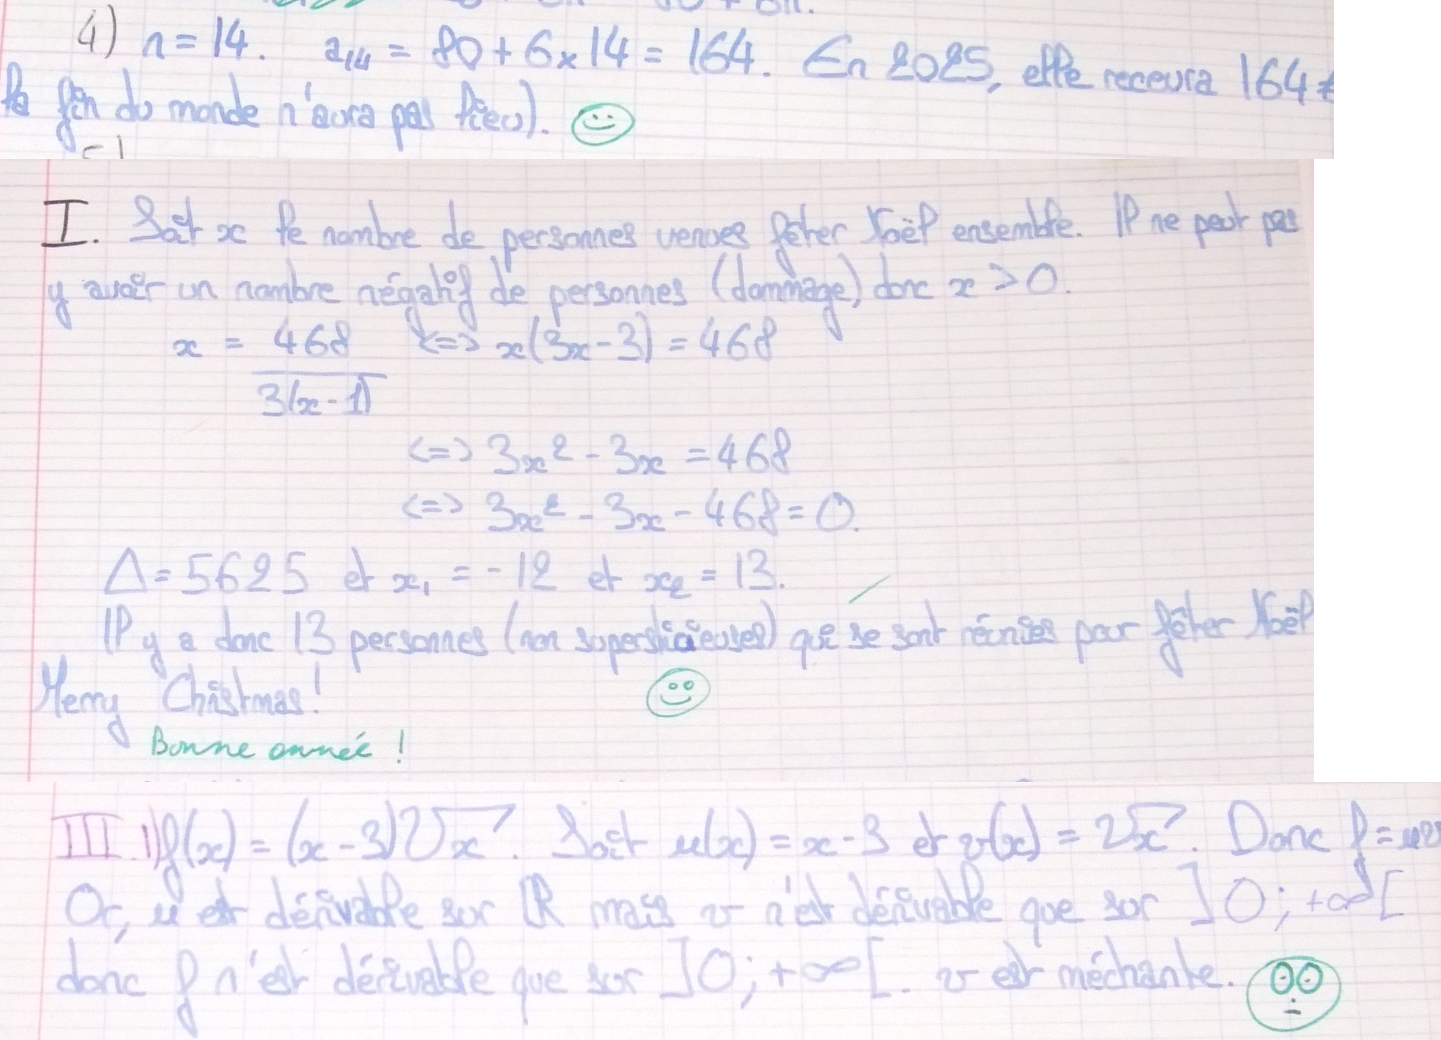 4) n = 14. a₁₄ = 80 + 6 x 14 = 164. En 2025, elle recevra 164 €
la fin du monde n'aura pas lieu).
I. Soit x le nombre de personnes venues fêter Noël ensemble. Il ne peut pas
y avoir un nombre négatif de personnes (dommage) donc x > 0.
x = 468 / 3(x - 1) <=> x(3x - 3) = 468
<=> 3x² - 3x = 468
<=> 3x² - 3x - 468 = 0.
Δ = 5625 et x₁ = -12 et x₂ = 13.
Il y a donc 13 personnes (non superstitieuses) qui se sont réunies pour fêter Noël
Merry Christmas!
Bonne année !
III. 1) f(x) = (x - 3)2√x. Soit u(x) = x - 3 et v(x) = 2√x. Donc f = uv
Or, u est dérivable sur ℝ mais v n'est dérivable que sur ]0; +∞[
donc f n'est dérivable que sur ]0; +∞[. v est méchante.